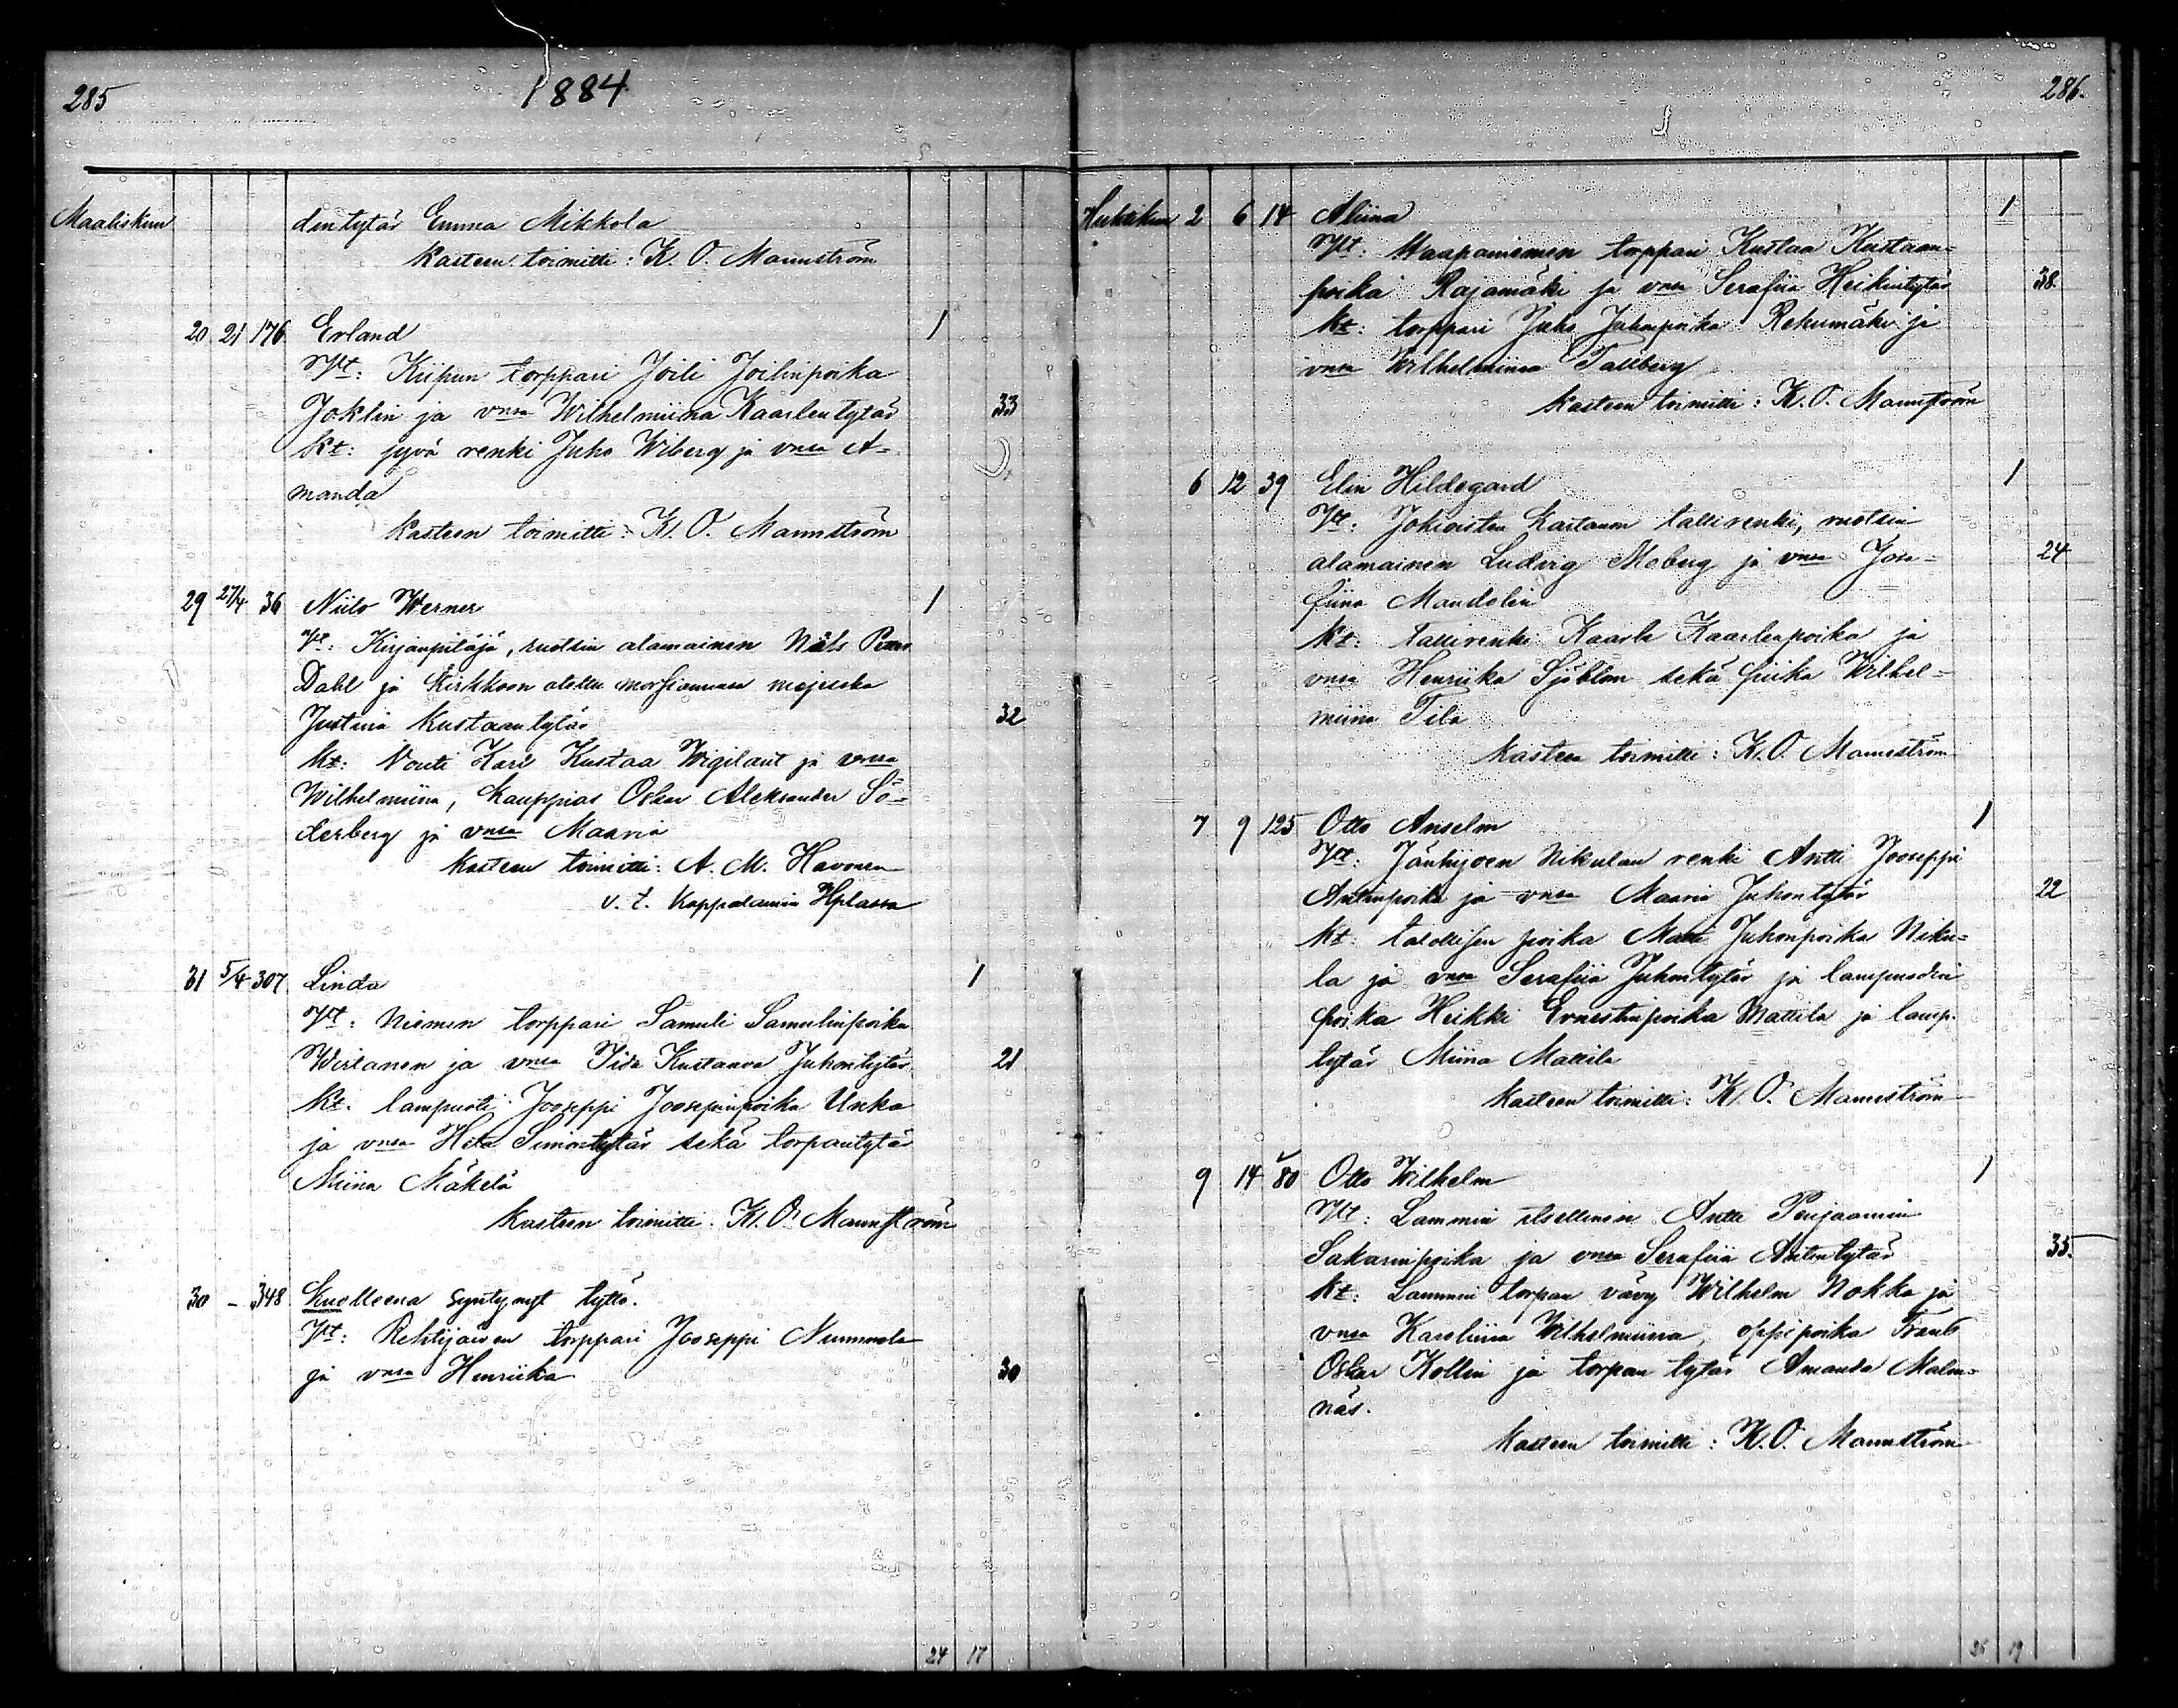 285
1884
Maaliskuu
dintytär Emma Mikkola
Kasteen toimitti: K. O. Mannström
20 21 176 Erland 1
Vt: Kiipun torppari Joili Joilinpoika
Joklin ja vnsa Wilhelmiina Kaarlentytär 33
Kt: jyvä renki Juho Wiberg ja vnsa A-
manda
Kasteen toimitti: K. O. Mannström
29 27/4 36 Niilo Werner 1
Vt: Kirjanpitäjä, ruotsin alamainen Nils
Dahl ja Kirkkoon otettu morsiamensa
Justina Kustaantytär 32
Kt: Vouti Karl Kustaa Wigilant ja vnsa
Wilhelmiina, Kauppias Oskar Aleksander Sö-
derberg ja vnsa Maaria
Kasteen toimitti: A. M. Havonen
v. t. Kappalainen
31 5/4 307 Linda 1
Vt: Niemen torppari Samuli Samulinpoika
Wirtanen ja vnsa Iida Kustaava Juhontytär 21
Kt. lampuoti Jooseppi Joosepinpoika Unka
ja vnsa Heta Simontytär sekä torpantytär
Miina Mäkelä
Kasteen toimitti. K. O. Mannström
30 - 348 Kuolleena syntynyt tyttö.
Vt: Rehtijärven torppari Jooseppi Nummela
ja vnsa Henriika 30
24 17
286.
Huhtikuu 2 6 14 Aliina 1
Vt: Haapaniemen torppari Kustaa Kustaan-
poika Rajamäki ja vnsa Serafia Heikintytär 38.
Kt: torppari Juho Juhonpoika Rekumäki ja
vnsa Wilhelmiina Tallberg
Kasteen toimitti: K. O. Mannström
6 12 39 Elin Hildegard 1
Vt. Jokioisten Kartanon tallirenki, ruotsin
alamainen Ludvig Moberg ja vnsa Jose- 24
fiina Mandolin
Kt: tallirenki Kaarle Kaarlenpoika ja
vnsa Henriika Sjöblom sekä piika Wilhel-
miina Tila
Kasteen toimitti: K. O. Mannström
7 9 125 Otto Anselm 1
Vt: Jänhijoen Nikulan renki Antti Jooseppi
Antinpoika ja vnsa Maaria Juhontytär 22
Kt: talollisen poika Matti Juhonpoika Niku-
la ja vnsa Serafia Juhontytär ja lampuodin
poika Heikki Ernestinpoika Mattila ja lamp.
tytär Miina Mattila
Kasteen toimitti: K. O. Mannström
9 14 80 Otto Wilhelm 1
Vt: Lammin itsellinen Antti Penjaamin
Sakarinpoika ja vnsa Serafia Antintytär 35.
Kt: Lammin torpan vävy Wilhelm Nokka ja
vnsa Karoliina Wilhelmiina, oppipoika Frans
Oskar Kollin ja torpan tytär Amanda Malm-
näs.
Kasteen toimitti: K. O. Mannström
26 19